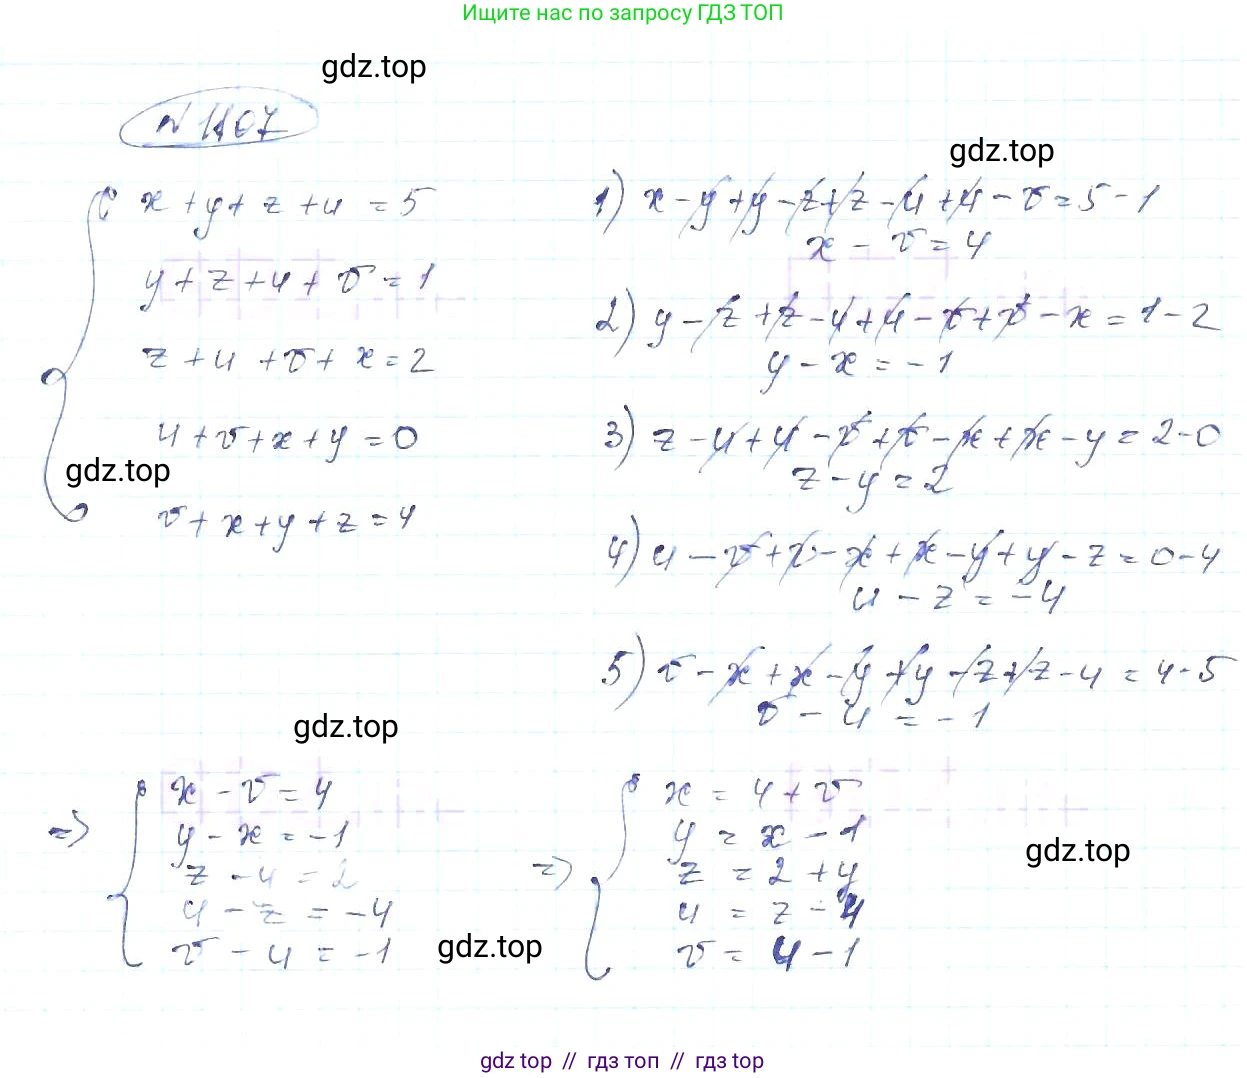 Ищите нас по запросу ГДЗ ТОП
gdz.top
№ 1107
gdz.top
x + y + z + u = 5
y + z + u + v = 1
z + u + v + x = 2
u + v + x + y = 0
gdz.top
v + x + y + z = 4
1) x - y + y - z + z - u + u - v = 5 - 1
x - v = 4
2) y - z + z - u + u - v + v - x = 1 - 2
y - x = -1
3) z - u + u - v + v - x + x - y = 2 - 0
z - y = 2
4) u - v + v - x + x - y + y - z = 0 - 4
u - z = -4
5) v - x + x - y + y - z + z - u = 4 - 5
v - u = -1
gdz.top
=> x - v = 4
y - x = -1
z - y = 2
u - z = -4
v - u = -1
gdz.top
=> x = 4 + v
y = x - 1
z = 2 + y
u = z - 4
v = u - 1
gdz.top
gdz top // гдз топ // гдз top